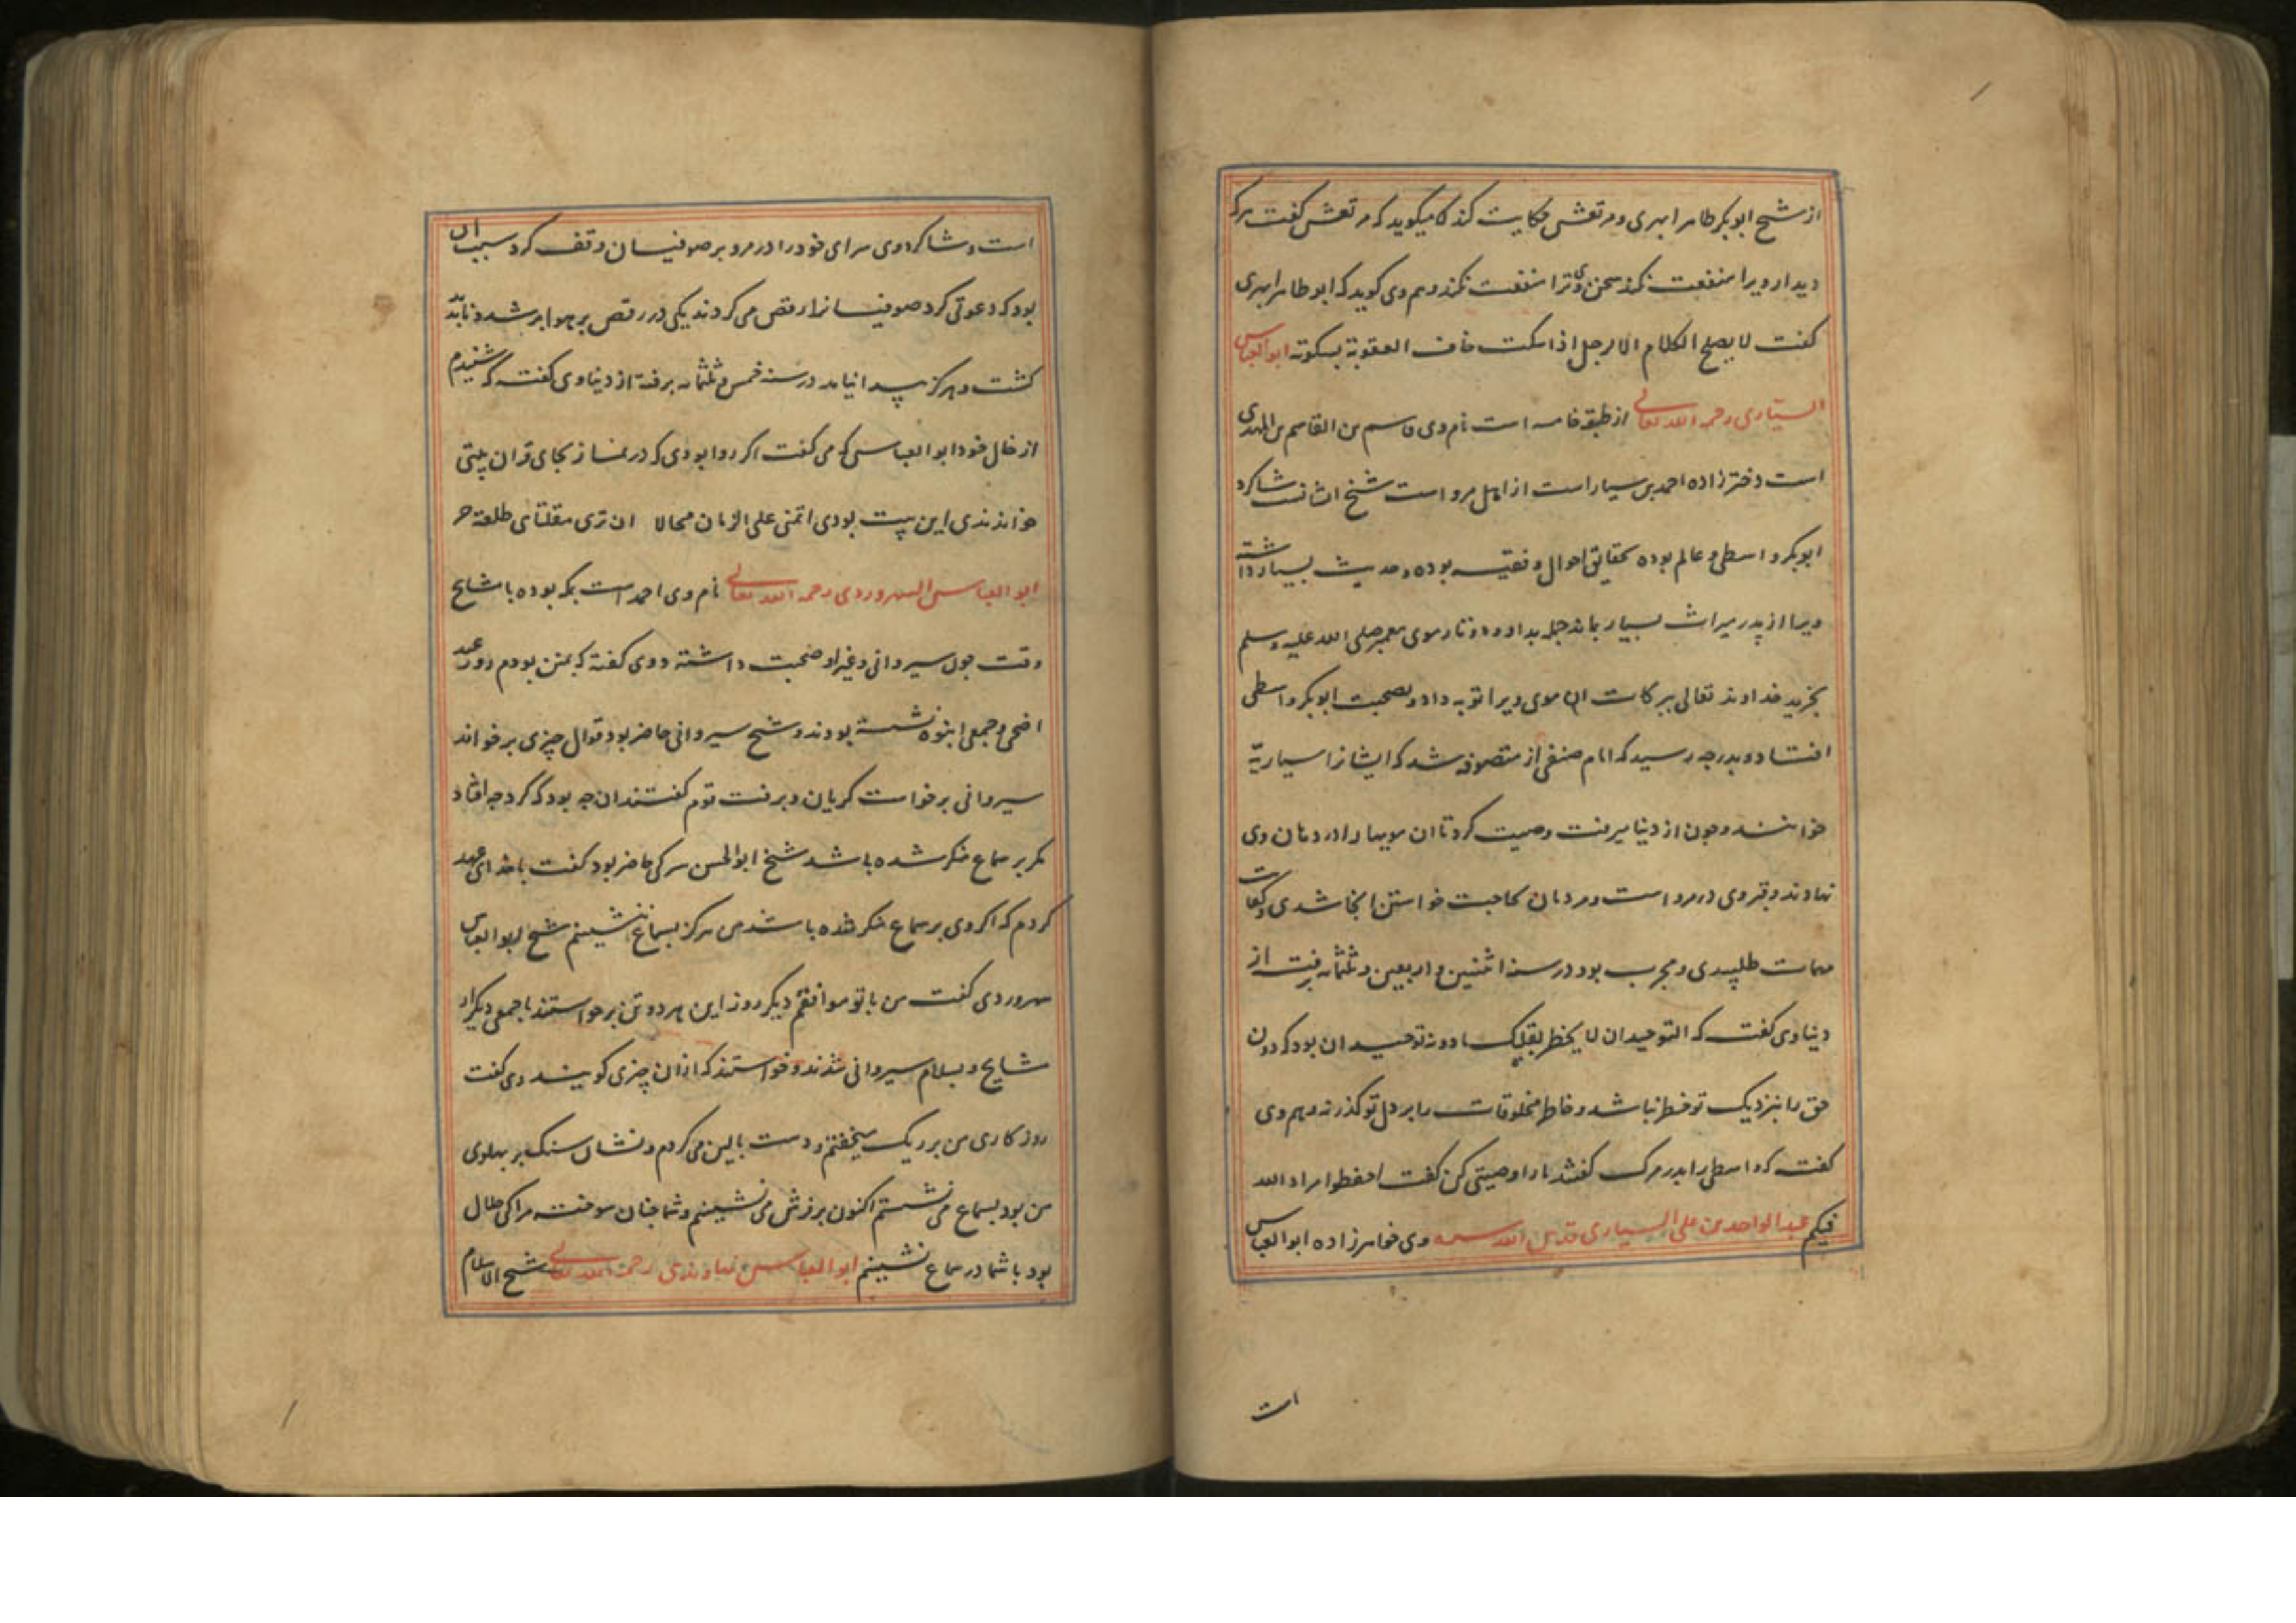 از شیخ ابوبکر طاهر ابهری و مرتعش حکایت کند کا میکوید که مرتعش کفت هرکه
دیدار ویرا منفعت نکند سخن وی ترا منفعت نکند و هم وی کوید که ابوطاهر ابهری
کفت لا یصلح الکلام الا لرجل اذا سکت خاف العقوبة بسکوته ابوالعباس
السیّاری رحمه الله تعالی از طبقه خامسه است نام وی قاسم بن القاسم بن المهدی
است دختر زاده احمد بن سیار است از اهل مرو است شیخ ایشانست شاکرد
ابوبکر واسطی و عالم بوده بحقایق احوال و فقیه بوده و حدیث بسیار داشته
ویرا از پدر میراث بسیار بماند جمله بداد و دو تار موی پیغمبر صلی الله علیه وسلم
بخرید خداوند تعالی ببرکات ان موی ویرا توبه داد و بصحبت ابوبکر واسطی
افتاد و بدرجه رسید که امام صنفی از متصوفه شد که ایشانرا سیاریّه
خوانند و چون از دنیا میرفت وصیت کرد تا ان مویها را در دهان وی
نهادند و قبر وی در مرو است و مردمان بحاجت خواستن انجا شدی و کفایت
مهمات طلبیدی و مجرب بود در سنه اثنین و اربعین و ثلثمایه برفت از
دنیا وی کفت که التوحید ان لا یخطر بقلبک ما دونه توحید ان بود که دون
حق را بنزدیک تو خطر نباشد و خاطر مخلوقات را بر دل تو کذر نه و هم وی
کفت که واسطی را بدر مرک کفتند ما را وصیتی کن کفت احفظوا مراد الله
فیکم عبدالواحد بن علی السیاری قدس الله سره وی خواهر زاده ابوالعباس
است
است و شاکرد وی سرای خود را در مرو بر صوفیان وقف کرد سبب ان
بود که دعوتی کرد صوفیانرا رقص می کردند یکی در رقص بر هوا بر شد و ناپدید
کشت و هرکز پیدا نیامد در سنه خمس و ثلثمایه برفته از دنیا وی کفت که شنیدم
از خال خود ابوالعباس که می کفت اکر روا بودی که در نماز بجای قران بیتی
خواندندی این بیت بودی اتمنی علی الزمان محالا ان تری مقلتای طلعة حر
ابوالعباس السهروردی رحمه الله تعالی نام وی احمد است بمکه بوده با مشایخ
وقت چون سیروانی و غیر او صحبت داشته و وی کفته که بمنی بودم روز عید
اضحی و جمعی انبوه نشسته بودند و شیخ سیروانی حاضر بود قوال چیزی برخواند
سیروانی برخواست کریان و برفت قوم کفتند ان چه بود که کرد چه افتاد
مکر بر سماع منکر شده باشد شیخ ابوالحسن سرکی حاضر بود کفت با خدای عهد
کردم که اکر وی بر سماع منکر شده باشد من هرکز بسماع ننشینم شیخ ابوالعباس
سهروردی کفت من با تو موافقم دیکر روز این هر دو تن برخواستند با جمعی دیکر از
مشایخ و بسلام سیروانی شدند و خواستند که ازان چیزی کویند وی کفت
روز کاری من بر ریک میخفتم و دست بالین می کردم و نشان سنک بر پهلوی
من بود بسماع می نشستم اکنون بر فرش می نشینم و شما چنان سوخته مرا کی حلال
بود با شما در سماع نشینم ابوالعباس نهاوندی رحمه الله تعالی شیخ الاسلام